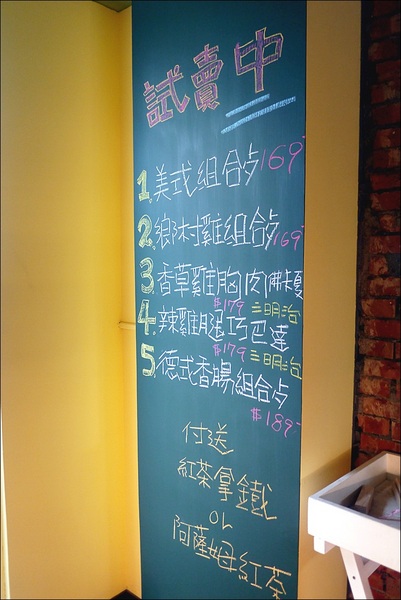 試賣中
1. 美式組合歺 169
2. 鄉村雞組合歺 169
3. 香草雞胸肉佛卡夏
$179 三明治
4. 辣雞腿巧巴達
$179 三明治
5. 德式香腸組合歺
$189
付送
紅茶拿鐵
or
阿薩姆紅茶